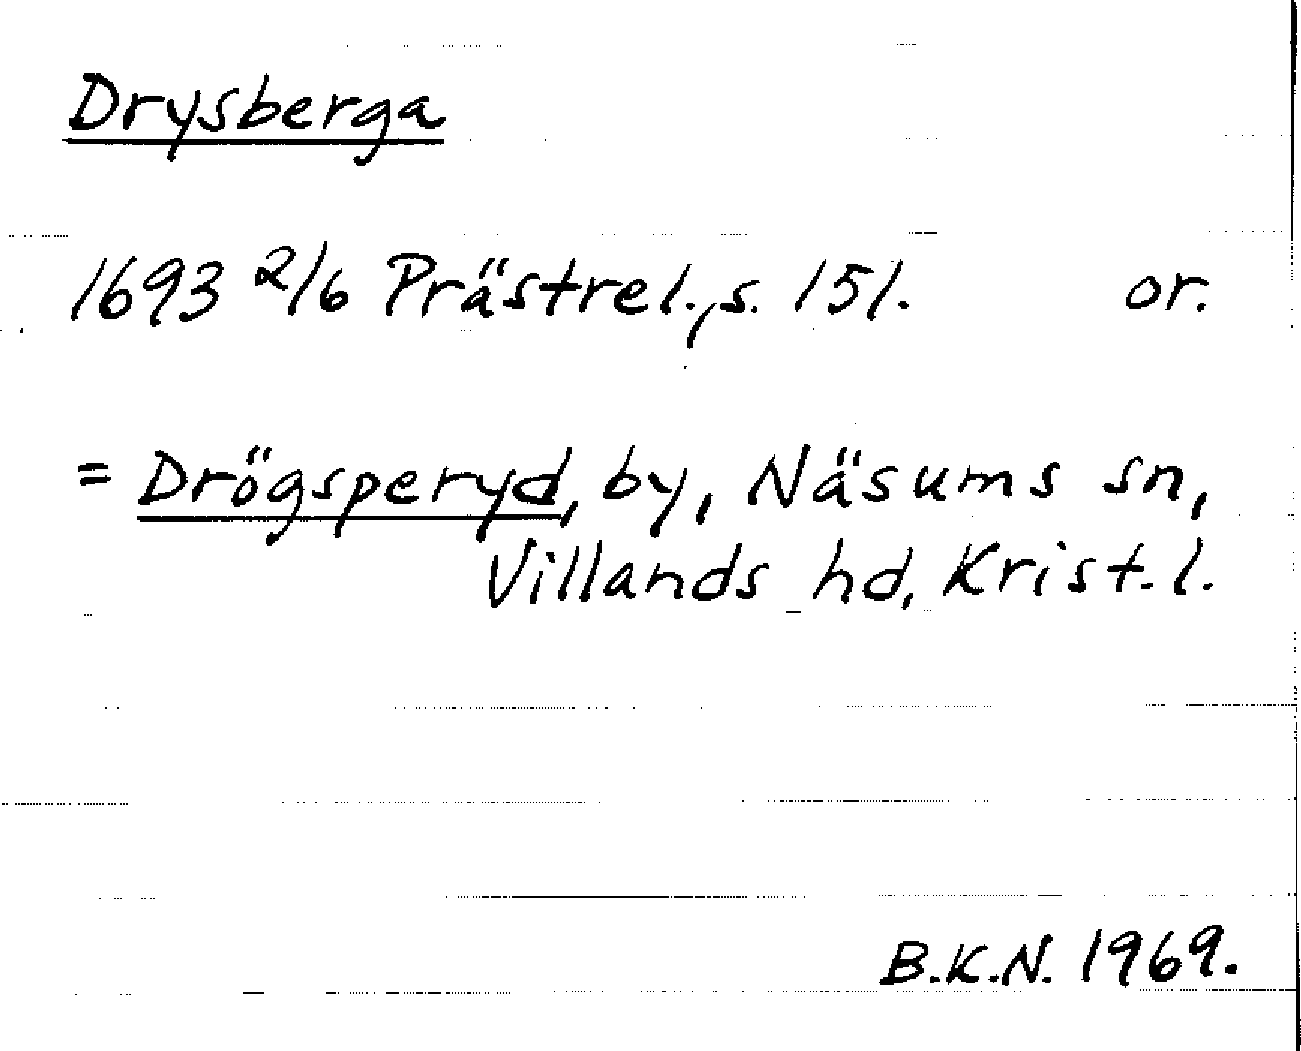 Drysberga
1693 2/6 Prästrel., s. 151. or.
= Drögsperyd, by, Näsums sn,
Villands hd, Krist. l.
B.K.N. 1969.